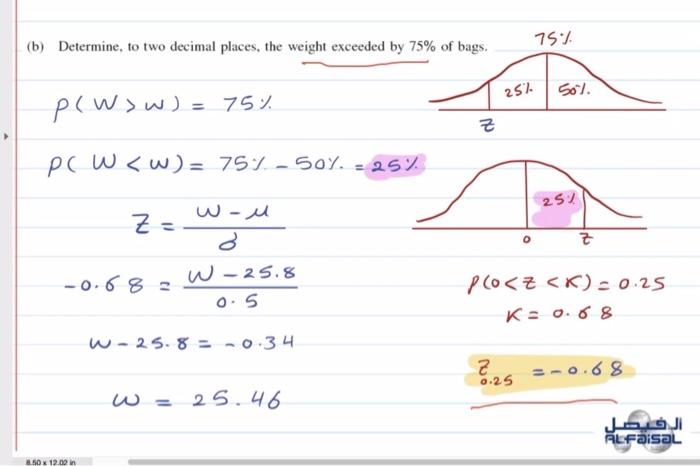 (b) Determine, to two decimal places, the weight exceeded by 75% of bags.
75%
25% 50%
Z
P(W > w) = 75%
P(W < w) = 75% - 50% = 25%
25%
0 Z
Z = w - μ / σ
-0.68 = w - 25.8 / 0.5
w - 25.8 = -0.34
w = 25.46
P(0 < Z < K) = 0.25
K = 0.68
Z 0.25 = -0.68
الفيصل
ALFAISAL
8.50 x 12.02 in